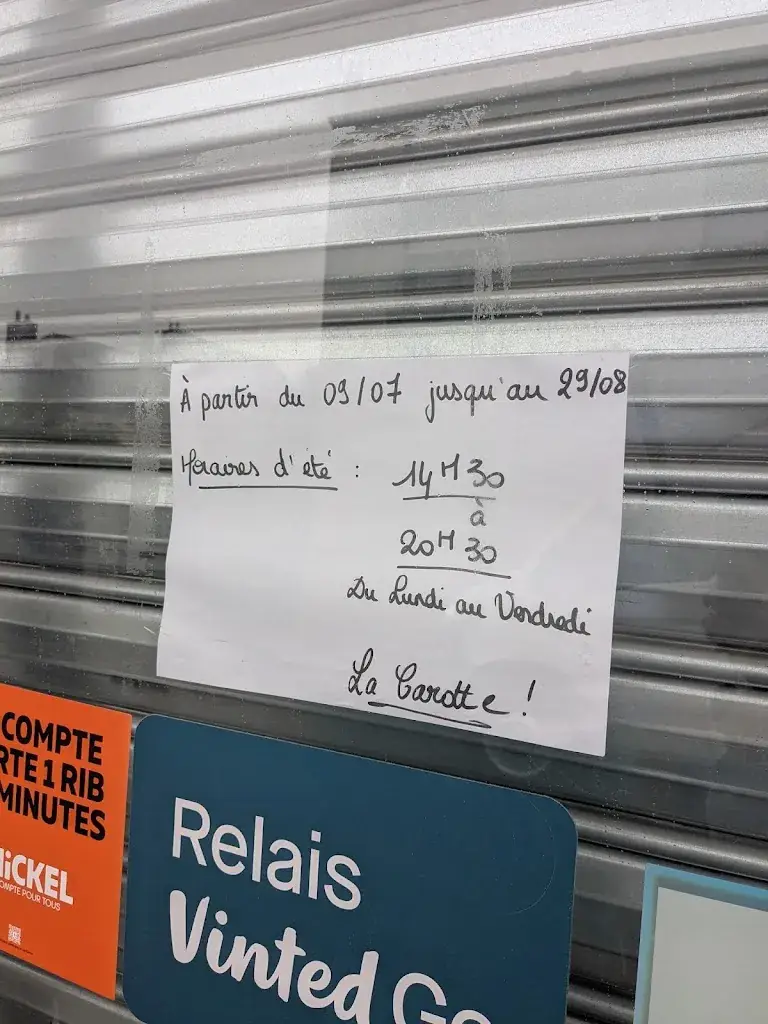 À partir du 09/07 jusqu'au 29/08
Horaires d'été : 14H30
à
20H30
Du Lundi au Vendredi
La Carotte !
COMPTE
RTE 1 RIB
MINUTES
NiCKEL
COMPTE POUR TOUS
Relais
Vinted Go